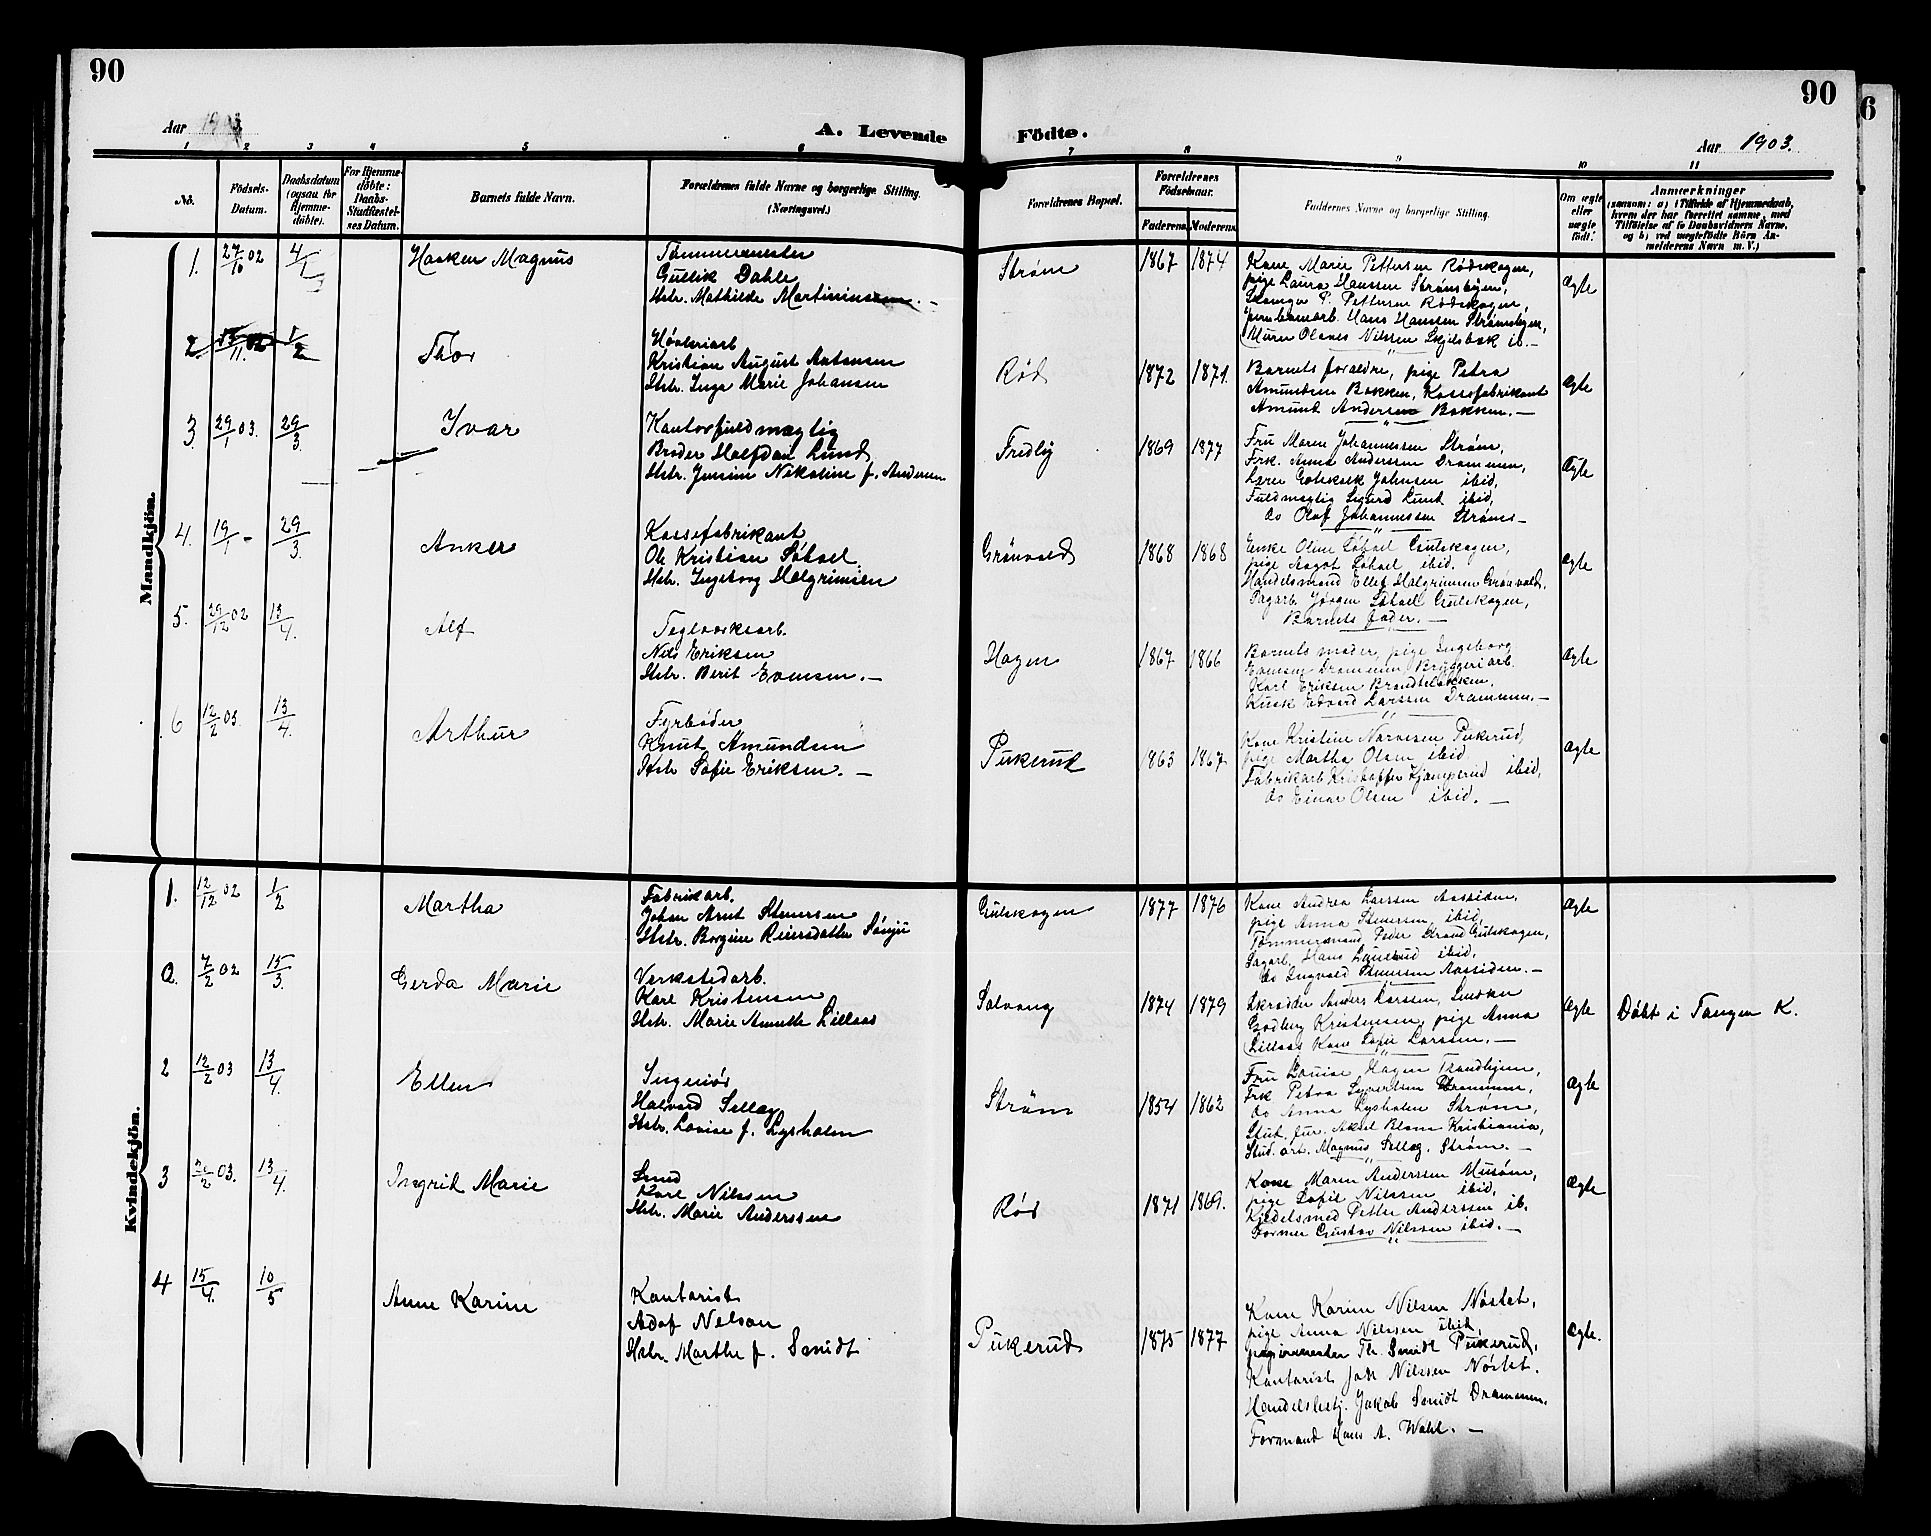 90
90
6
Aar 1903
A. Levende Födte.
Aar 1903.
1 2 3 4 5 6 7 8 9 10 11
No.
Födsels-
Datum.
Daabsdatum
(ogsaa for
Hjemme-
döbte).
For Hjemme-
döbte:
Daabs-
Stadfæstel-
ses Datum.
Barnets fulde Navn.
Forældrenes fulde Navne og borgerlige Stilling.
(Næringsvei.)
Forældrenes Bopæl.
Forældrenes
Födselsaar.
Faderens. Moderens.
Faddernes Navne og borgerlige Stilling.
Om ægte
eller
uægte
födt.
Anmærkninger
(saasom: a) i Tilfælde af Hjemmedaab,
hvem der har forrettet samme, med
Tilföielse af to Daabsvidners Navne,
og b) ved uægtefödte Börn An-
melderens Navn m. V.)
Mandkjön.
1. 27/10 02 4/1 Haaken Magnus
Tømmermester
Gullik Dahle
Hstr. Mathilde Martinius
Strøm 1867 1874
Kone Marie Pettersen Rødskogen,
pige Laura Hanssen Strømsbyen,
P. Pettersen Rødskogen,
Hans Hanssen Strømsbyen,
Murer Olaves Nilssen Skjelsbæk ib. —
Ægte
2 11. 02 1/2 Thor
Høvleriarb
Kristian August Antonsen
Hstr. Inga Marie Johansen
Rød 1872 1871.
Barnets forældre, pige Petra
Amundsen Bakken, Kassefabrikant
Amund Andersen Bakken. —
Ægte
3. 29/1 03. 29/3 Ivar
Kontorfuldmægtig
Broder Halfdan Lund
Hstr. Jensine Nikoline f. Andersen
Fredlig 1869 1877
Fru Maren Johannessen Strøm,
Frk. Anna Anderssen Drammen,
Lærer Johnsen ibid,
Fuldmægtig Sigurd Lund ibid,
do Olaf Johannessen Strøm. —
Ægte
4. 19/1 - 29/3. Anker
Kassefabrikant
Ole Kristian Søhoel
Hstr. Ingeborg Halgrimsen
Grønvold 1868 1868
Enke Oline Søhoel Gulskogen,
pige Aagot Søhoel ibid.
Handelsmand Ellef Halgrimsen Grønvold,
Sagarb. Jørgen Søhoel Gulskogen,
Barnets fader. —
Ægte
5. 29/12 02 13/4. Alf
Teglverksarb.
Nils Eriksen
Hstr. Berit Evensen. —
Hagen 1867 1866
Barnets moder, pige Ingeborg
Evensen Drammen Bryggeriarb.
Karl Eriksen Brandteløkken.
Kusk Edvard Larssen Drammen. —
Ægte
6 12/2 03. 13/4. Arthur
Fyrbøder
Knut Amundsen
Hstr Sofie Eriksen. —
Pukerud 1863 1867
Kone Kristine Narvesen Pukerud,
pige Martha Olsen ibid
Fabrikarb Kristoffer Kjæmperud ibid,
do Einar Olsen ibid. —
Ægte
Kvindekjön.
1. 12/12 02 1/2 Martha
Fabrikarb.
Johan Arnt Stenersen
Hstr. Borgine Reiersdatter Sønju
Gulskogen 1877 1876
Kone Andrea Larssen Aassiden,
pige Anna Stenersen, ibid,
Tømmermand Peder Strand Gulskogen,
Sagarb. Hans Lunerud ibid,
do Ingvald Stenersen Aassiden. —
Ægte
2. 7/2 02 15/3. Gerda Marie
Verkstedarb.
Karl Kristensen
Hstr. Marie Annette Lillaas
Solvang 1874 1879
Skrædder Anders Larssen, Snedker
Godberg Kristensen, pige Anna
Lillaas Kone Sofie Larssen. —
Ægte Døbt i Tangen K.
2 12/2 03 13/4. Ellen
Ingeniør
Halvard Selleg
Hstr. Lovise f. Lysholm
Strøm 1854 1862
Fru Louise Hagen Trondhjem,
Frk Petra Syvertsen Drammen,
do Anna Lysholm Strøm,
Stud. jur. Aksel Blom Kristiania,
Stud. art. Magnus Selleg. Strøm. —
Ægte
3 20/2 03. 13/4. Ingrid Marie
Smed
Karl Nilssen
Hstr. Marie Anderssen
Rød 1871 1869.
Kone Maren Anderssen Musøen,
pige Sofie Nilssen ibid,
Kjedelsmed Petter Anderssen ib,
Former Gustav Nilssen ibid. —
Ægte
4 15/4. 10/5 Anne Karine
Kontorist
Adof Nelson
Hstr. Marthe f. Smidt
Pukerud 1875 1877
Kone Karine Nilsen Nøstet,
pige Anna Nilssen ibid
Th. Smidt Pukerud,
Kontorist Joh Nilssen Nøstet.
Handelsbetj. Jakob Smidt Drammen.
Formand Hans A. Wahl. —
Ægte.